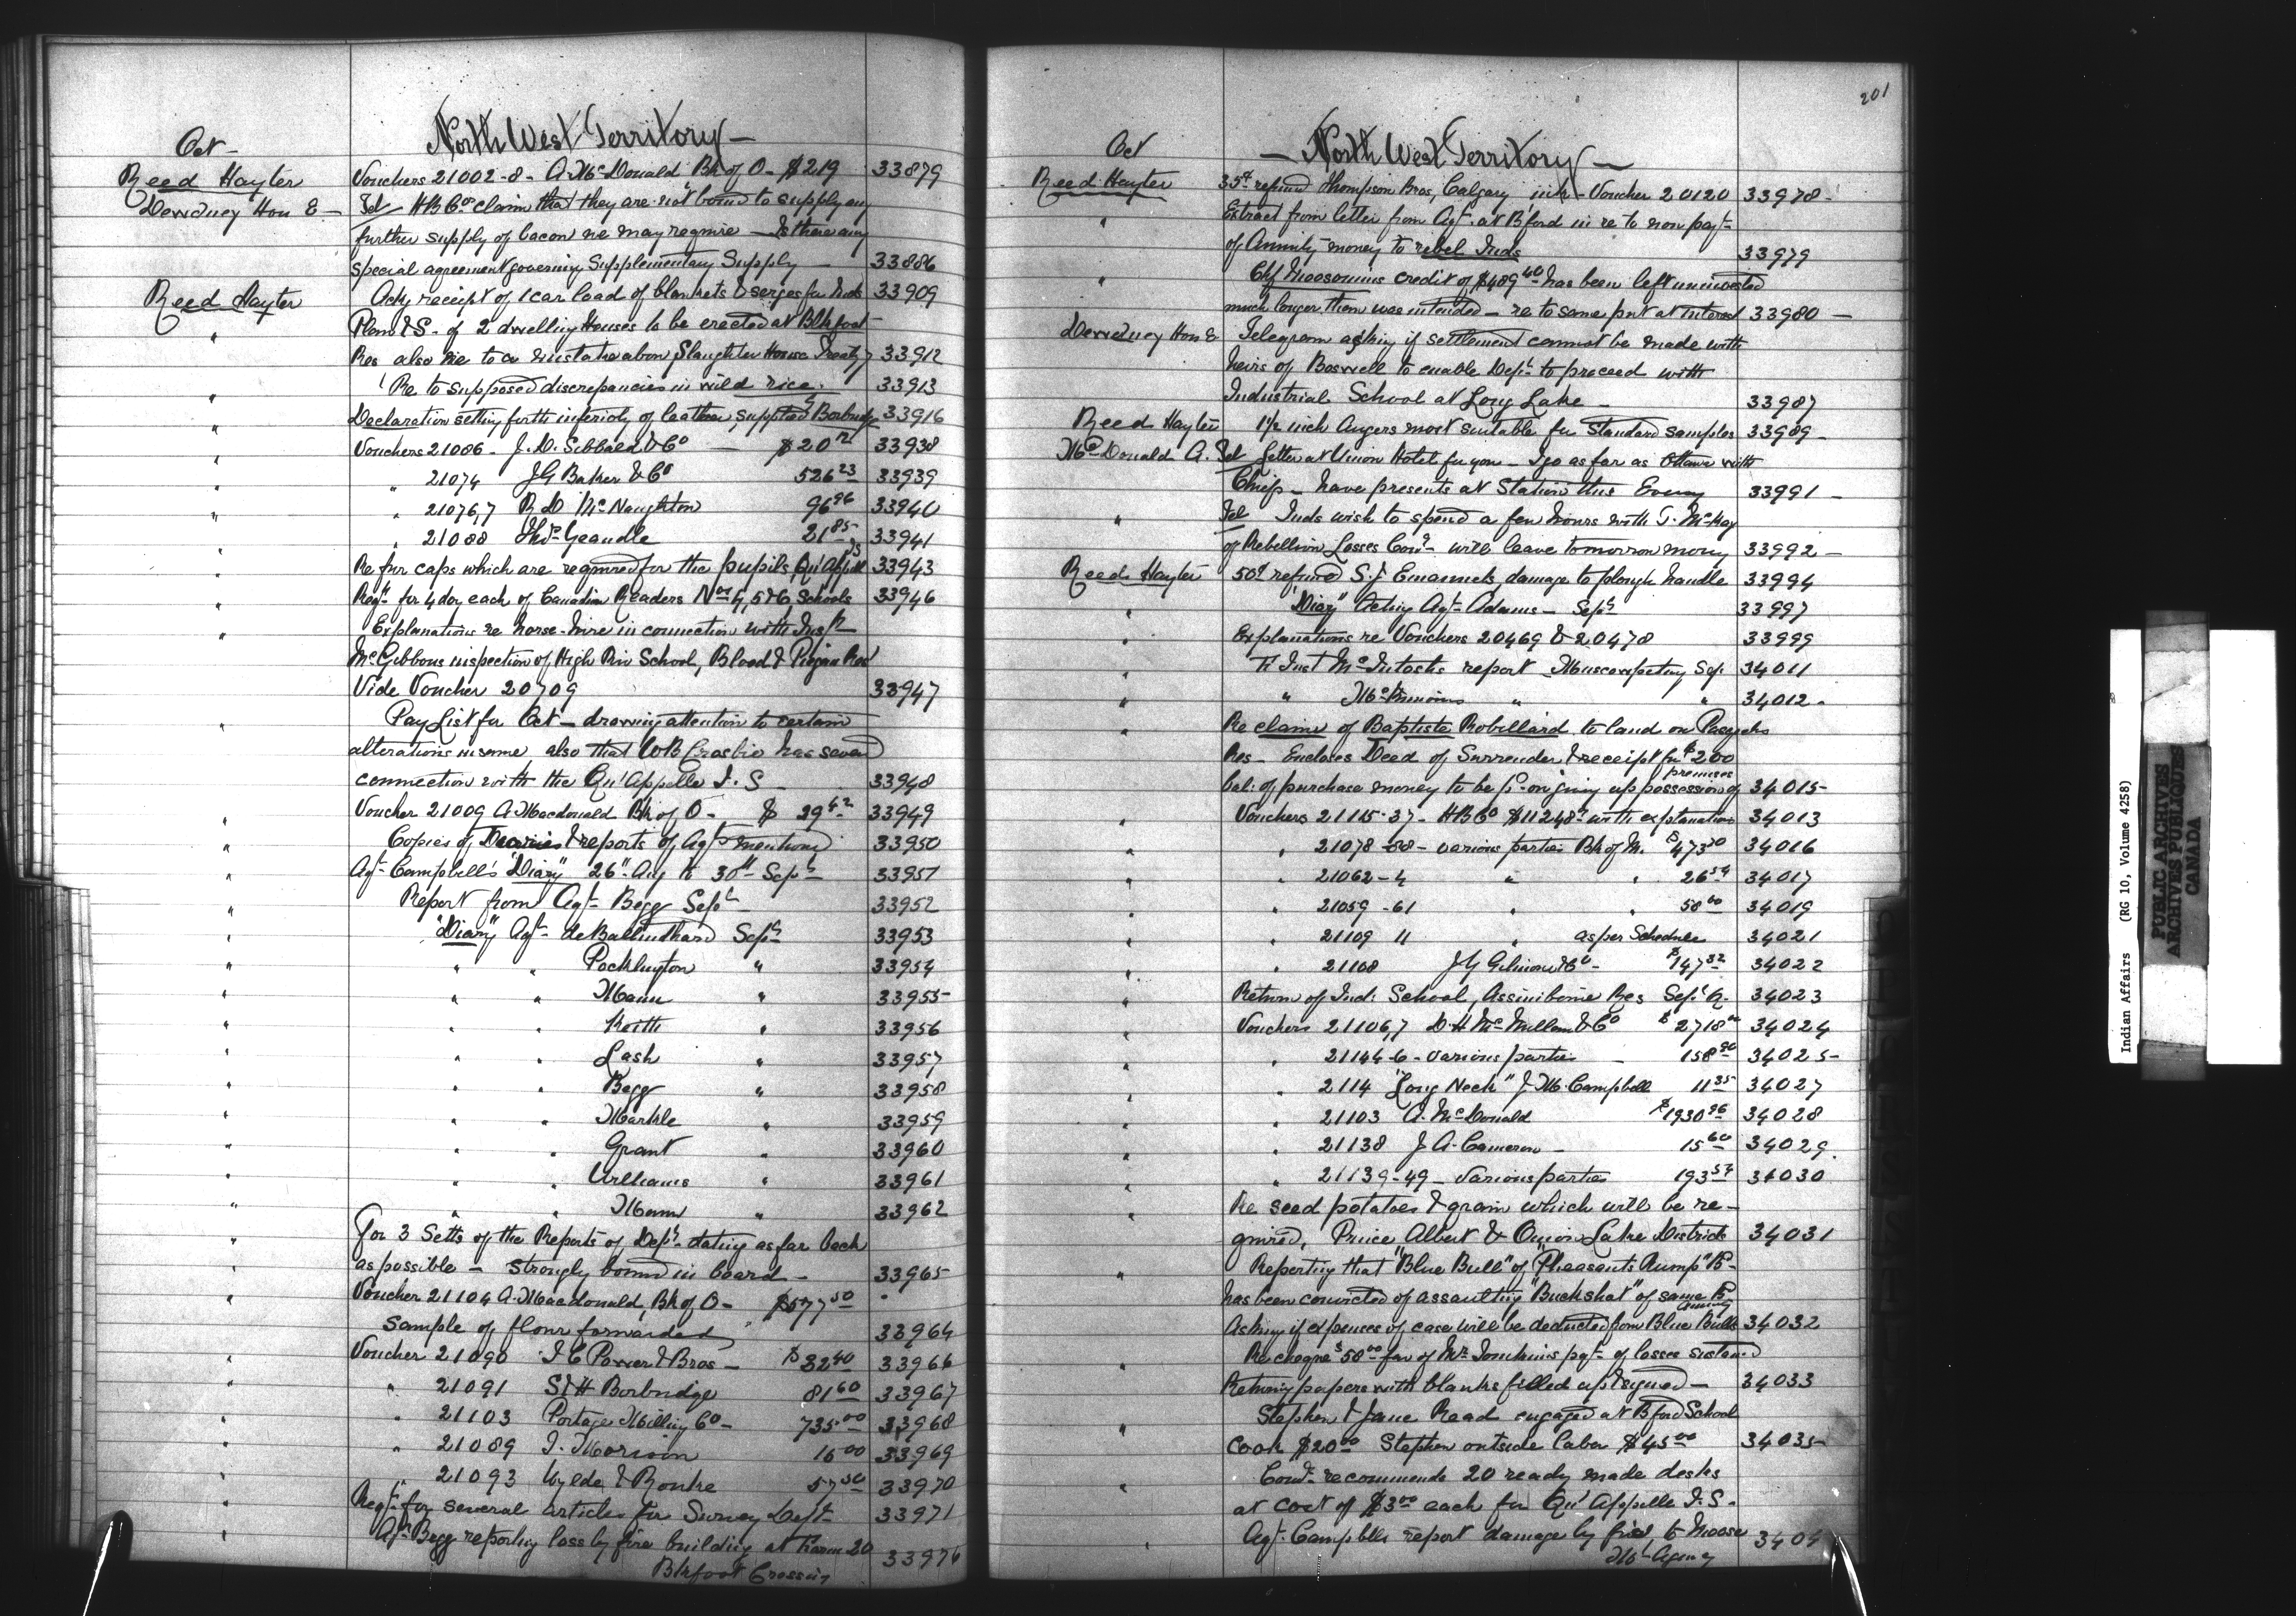 North West Territory
Oct
Reed Hayter Vouchers 21002-8 - A. McDonald Bk of O - $219 33879
Dewdney Hon E - Tel HB Co claim that they are not bound to supply any
further supply of bacon we may require - Is there any
special agreement governing Supplementary Supply 33886
Reed Hayter Ack receipt of 1 car load of blankets & serges for Inds 33909
" Plan & S. of 2 dwelling Houses to be erected at Blkfoot
Res also re to a mistake abou Slaughter House Treaty 7 33912
" Re to supposed discrepancies in wild rice. 33913
" Declaration setting forth inferiority of leather supplied Borbridge 33916
" Vouchers 21086 - J. D. Sibbald & Co - $20 33938
" " 21074 J G Baker & Co 526 23 33939
" " 21076,7 R D McNaughton 96 96 33940
" " 21088 Thos Geandle 21 85 33941
" Re fur caps which are required for the pupils, Qu'Appelle 33943
" Reqn for 4 doz each of Canadian Readers Nos 4, 5 & 6 Schools 33946
" Explanations re horse-hire in connection with Inspr
McGibbons inspection of High Riv School, Blood & Piegan Res
Vide Voucher 20709 33947
" Pay List for Oct - drawing attention to certain
alterations in same also that WB Crosbie has severd
connection with the Qu'Appelle I. S - 33948
" Voucher 21009 A. Macdonald Bk of O - $ 29 42 33949
" Copies of Diaries & reports of Agts mentiond 33950
" Agt Campbell's "Diary" 26" Aug to 30th Sept 33951
" Report from Agt Begg Sept 33952
" "Diary" Agt deBalinhard Sept 33953
" " " Pocklington " 33954
" " " Mann " 33955
" " " Keith " 33956
" " " Lash " 33957
" " " Begg " 33958
" " " Markle " 33959
" " " Grant " 33960
" " " Williams " 33961
" " " Mann " 33962
" For 3 Setts of the Reports of Dept dating as far back
as possible - strongly bound in board - 33965
" Voucher 21104 A. Macdonald, Bk of O - $577 50
Sample of flour forwarded 33964
" Voucher 21090 I C Power & Bros - $32 40 33966
" " 21091 S & H Borbridge 81 60 33967
" " 21103 Portage Milling Co - 735.00 33968
" " 21089 I. Morison 16 00 33969
" " 21093 Wylde & Rourke 57 50 33970
" Reqt for several articles for Survey Dept 33971
" Agt Begg reporting loss by fire building at Farm 20
Blkfoot Crossing 33976
201
Oct
- North West Territory -
Reed Hayter 35¢ refund Thompson Bros, Calgary, ink - Voucher 20120 33978
" Extract from letter from Agt at Bford in re to non payt
of Annuity money to rebel Inds 33979
" Chf Moosomins credit of $489 40 has been left uninvested
much longer than was intended - re to same put at interest 33980
Dewdney Hon E Telegram asking if settlement cannot be made with
heirs of Boswell to enable Dept to proceed with
Industrial School at Long Lake - 33987
Reed Hayter 1½ inch Augers most suitable for Standard samples 33989
McDonald A. Tel Letter at Union Hotel for you - I go as far as Ottawa with
Chiefs - have presents at Station this Eveng 33991
" Tel Inds wish to spend a few hours with T. McKay
of Rebellion Losses Comn - will leave tomorrow morng 33992
Reed Hayter 50¢ refund S. J Emanuels, damage to plough handle 33994
" "Diary" Acting Agt Adams - Sept 33997
" Explanations re Vouchers 20469 & 20478 33999
" F Inst McIntoshs report Muscowpetung Sep. 34011
" " McKinnons " " 34012
" Re claim of Baptiste Robillard to land on Pasquahs
Res - Encloses Deed of Surrender & receipt for $200
premises
bal: of purchase money to be pd on giving up possession of 34015
" Vouchers 21115-37 - HB Co $11248 with explanation 34013
" " 21078-88 - various parties Bk of M. $473 30 34016
" " 21062-4 " " 26 59 34017
" " 21059-61 " " 58 00 34019
" " 21109 11 " as per Schedule 34021
" " 21108 J Y Gilmour & Co - $147 32 34022
" Return of Ind: School, Assiniboine Res Sept Qr. 34023
" Vouchers 21106,7 D. H McMillan & Co $2718 34024
" " 21144-6 - various parties - 158 90 34025
" " 2114 "Long Neck" J. M. Campbell 11 35 34027
" " 21103 A. McDonald $1930 96 34028
" " 21138 J A. Cameron - 15 60 34029
" " 21139-49 - Various parties 193 57 34030
" Re seed potatoes & grain which will be re-
quired, Prince Albert & Onion Lake Districts 34031
" Reporting that "Blue Bull" of "Pheasants Rump" Bd
has been convicted of assaulting "Buckshot" of same Bd
annuity
Asking if expenses of case will be deducted from Blue Bulls 34032
" Re cheque $58 00 fav of Mr Tomkins payt of losses sustaned
Returng papers with blanks filled up & signed - 34033
" Stephen & Jane Read engaged at Bford School
cook $20 00 Stephen outside labor $45 00 34035
" Comr recommends 20 ready made desks
at cost of $3 00 each for Qu'Appelle I. S -
" Agt Campbells report damage by fire, to Moose
Mt Agency 3404
Indian Affairs (RG 10, Volume 4258)
PUBLIC ARCHIVES
ARCHIVES PUBLIQUES
CANADA